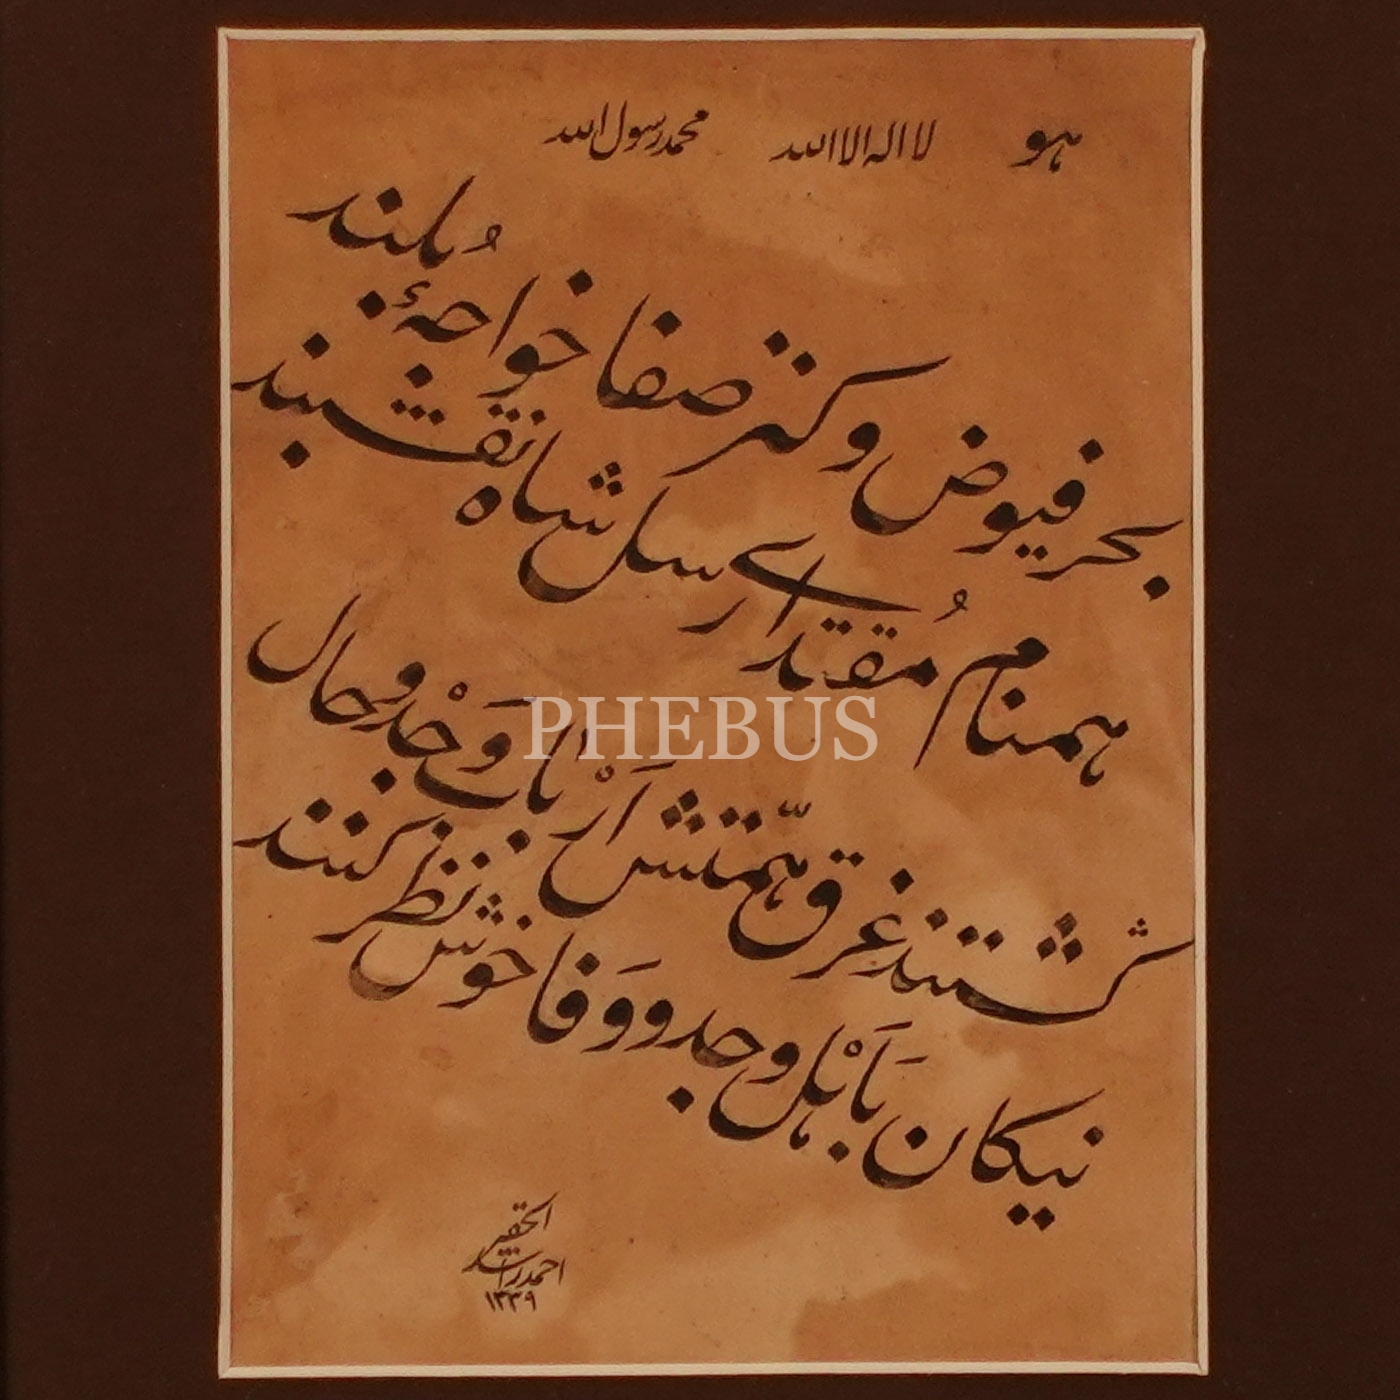 هو لا اله الا الله محمد رسول الله
بحر فيوض و كنز صفا خواجهٔ بُلند
همنام مُقتداے رسل شاه نقشبند
گشتند غرق همّتش اَرْبابِ وَجْد و حال
نيكان بَاَهْل وجد و وَفا خوش نظر كنند
PHEBUS
الحقير
احمد راشد
١٣٣٩